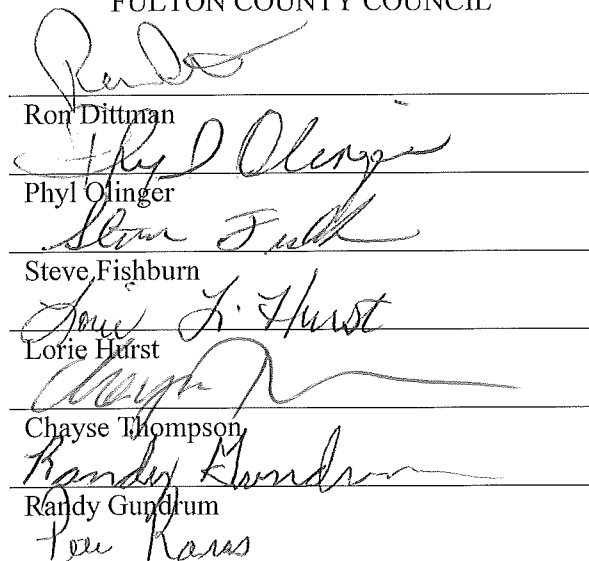 FULTON COUNTY COUNCIL
Ron Dittman
Phyl D Olinger
Phyl Olinger
Steve Fishburn
Lorie L. Hurst
Lorie Hurst
Chayse Thompson
Randy Gundrum
Randy Gundrum